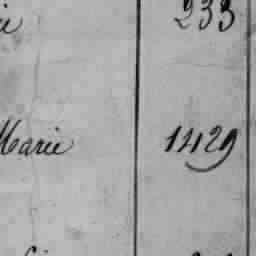 233
Marie 1429